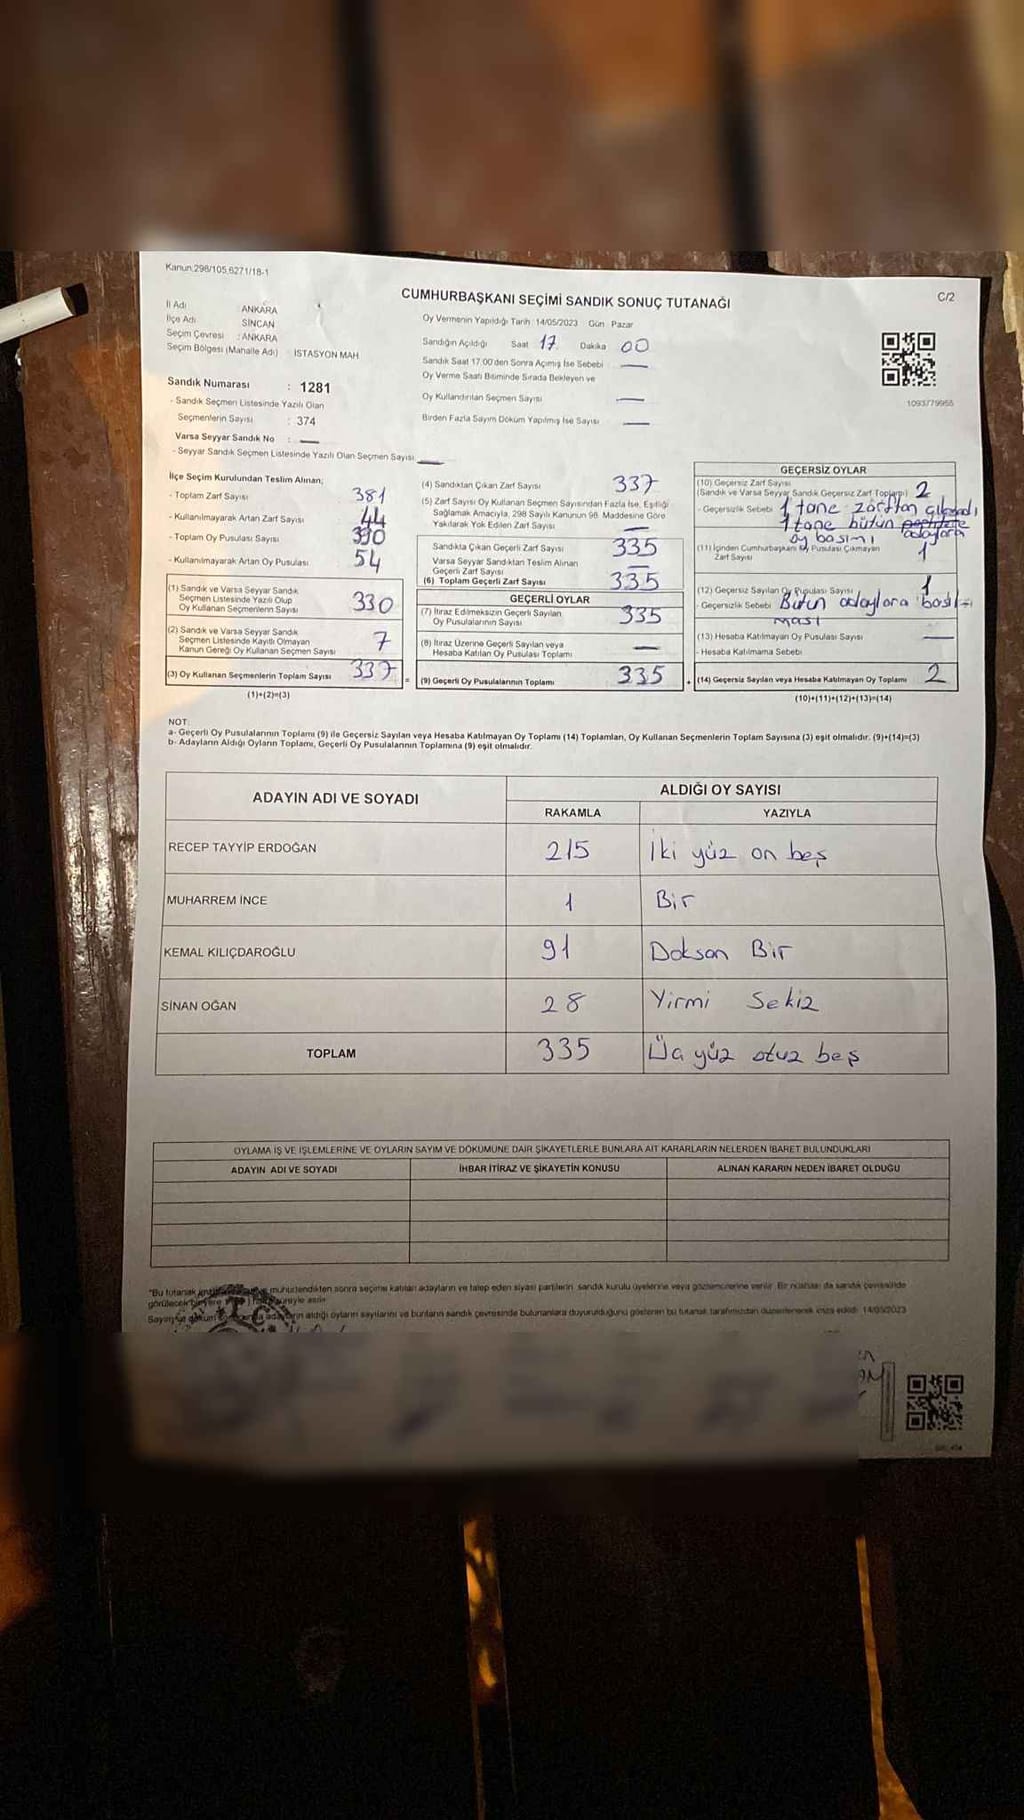 Kanun:298/105,6271/18-1
C/2
CUMHURBAŞKANI SEÇİMİ SANDIK SONUÇ TUTANAĞI
İl Adı ANKARA
İlçe Adı SİNCAN
Seçim Çevresi : ANKARA
Seçim Bölgesi (Mahalle Adı) İSTASYON MAH.
Oy Vermenin Yapıldığı Tarih: 14/05/2023 Gün Pazar
Sandığın Açıldığı Saat 17 Dakika 00
Sandık Saat 17.00'den Sonra Açımış İse Sebebi —
Oy Verme Saati Bitiminde Sırada Bekleyen ve
Oy Kullandırılan Seçmen Sayısı —
Birden Fazla Sayım Döküm Yapılmış İse Sayısı —
1093779955
Sandık Numarası : 1281
- Sandık Seçmen Listesinde Yazılı Olan
Seçmenlerin Sayısı : 374
Varsa Seyyar Sandık No : —
- Seyyar Sandık Seçmen Listesinde Yazılı Olan Seçmen Sayısı: —
İlçe Seçim Kurulundan Teslim Alınan;
- Toplam Zarf Sayısı 381
- Kullanılmayarak Artan Zarf Sayısı 44
- Toplam Oy Pusulası Sayısı 390
- Kullanılmayarak Artan Oy Pusulası 54
(1) Sandık ve Varsa Seyyar Sandık
Seçmen Listesinde Yazılı Olup
Oy Kullanan Seçmenlerin Sayısı 330
(2) Sandık ve Varsa Seyyar Sandık
Seçmen Listesinde Kayıtlı Olmayan
Kanun Gereği Oy Kullanan Seçmen Sayısı 7
(3) Oy Kullanan Seçmenlerin Toplam Sayısı 337
(1)+(2)=(3)
(4) Sandıktan Çıkan Zarf Sayısı 337
(5) Zarf Sayısı Oy Kullanan Seçmen Sayısından Fazla İse, Eşitliği
Sağlamak Amacıyla, 298 Sayılı Kanunun 98. Maddesine Göre
Yakılarak Yok Edilen Zarf Sayısı —
Sandıkta Çıkan Geçerli Zarf Sayısı 335
Varsa Seyyar Sandıktan Teslim Alınan
Geçerli Zarf Sayısı —
(6) Toplam Geçerli Zarf Sayısı 335
GEÇERLİ OYLAR
(7) İtiraz Edilmeksizin Geçerli Sayılan
Oy Pusulalarının Sayısı 335
(8) İtiraz Üzerine Geçerli Sayılan veya
Hesaba Katılan Oy Pusulası Toplamı —
= (9) Geçerli Oy Pusulalarının Toplamı 335
GEÇERSİZ OYLAR
(10) Geçersiz Zarf Sayısı
(Sandık ve Varsa Seyyar Sandık Geçersiz Zarf Toplamı) 2
- Geçersizlik Sebebi 1 tane zarftan çıkmadı
1 tane bütün adaylara
oy basımı
(11) İçinden Cumhurbaşkanı Oy Pusulası Çıkmayan
Zarf Sayısı 1
(12) Geçersiz Sayılan Oy Pusulası Sayısı 1
- Geçersizlik Sebebi Bütün adaylara basıl
ması
(13) Hesaba Katılmayan Oy Pusulası Sayısı —
- Hesaba Katılmama Sebebi
+ (14) Geçersiz Sayılan veya Hesaba Katılmayan Oy Toplamı 2
(10)+(11)+(12)+(13)=(14)
NOT:
a- Geçerli Oy Pusulalarının Toplamı (9) ile Geçersiz Sayılan veya Hesaba Katılmayan Oy Toplamı (14) Toplamları, Oy Kullanan Seçmenlerin Toplam Sayısına (3) eşit olmalıdır. (9)+(14)=(3)
b- Adayların Aldığı Oyların Toplamı, Geçerli Oy Pusulalarının Toplamına (9) eşit olmalıdır.
ADAYIN ADI VE SOYADI ALDIĞI OY SAYISI
RAKAMLA YAZIYLA
RECEP TAYYİP ERDOĞAN 215 İki yüz on beş
MUHARREM İNCE 1 Bir
KEMAL KILIÇDAROĞLU 91 Doksan Bir
SİNAN OĞAN 28 Yirmi Sekiz
TOPLAM 335 Üç yüz otuz beş
OYLAMA İŞ VE İŞLEMLERİNE VE OYLARIN SAYIM VE DÖKÜMÜNE DAİR ŞİKAYETLERLE BUNLARA AİT KARARLARIN NELERDEN İBARET BULUNDUKLARI
ADAYIN ADI VE SOYADI İHBAR İTİRAZ VE ŞİKAYETİN KONUSU ALINAN KARARIN NEDEN İBARET OLDUĞU
"Bu tutanak mühürlendikten sonra seçime katılan adayların ve talep eden siyasi partilerin sandık kurulu üyelerine veya gözlemcilerine verilir. Bir nüshası da sandık çevresinde
görülecek bir yere süreyle asılır.
Sayım ve döküm adayların aldığı oyların sayılarını ve bunların sandık çevresinde bulunanlara duyurulduğunu gösteren bu tutanak tarafımızdan düzenlenerek imza edildi. 14/05/2023